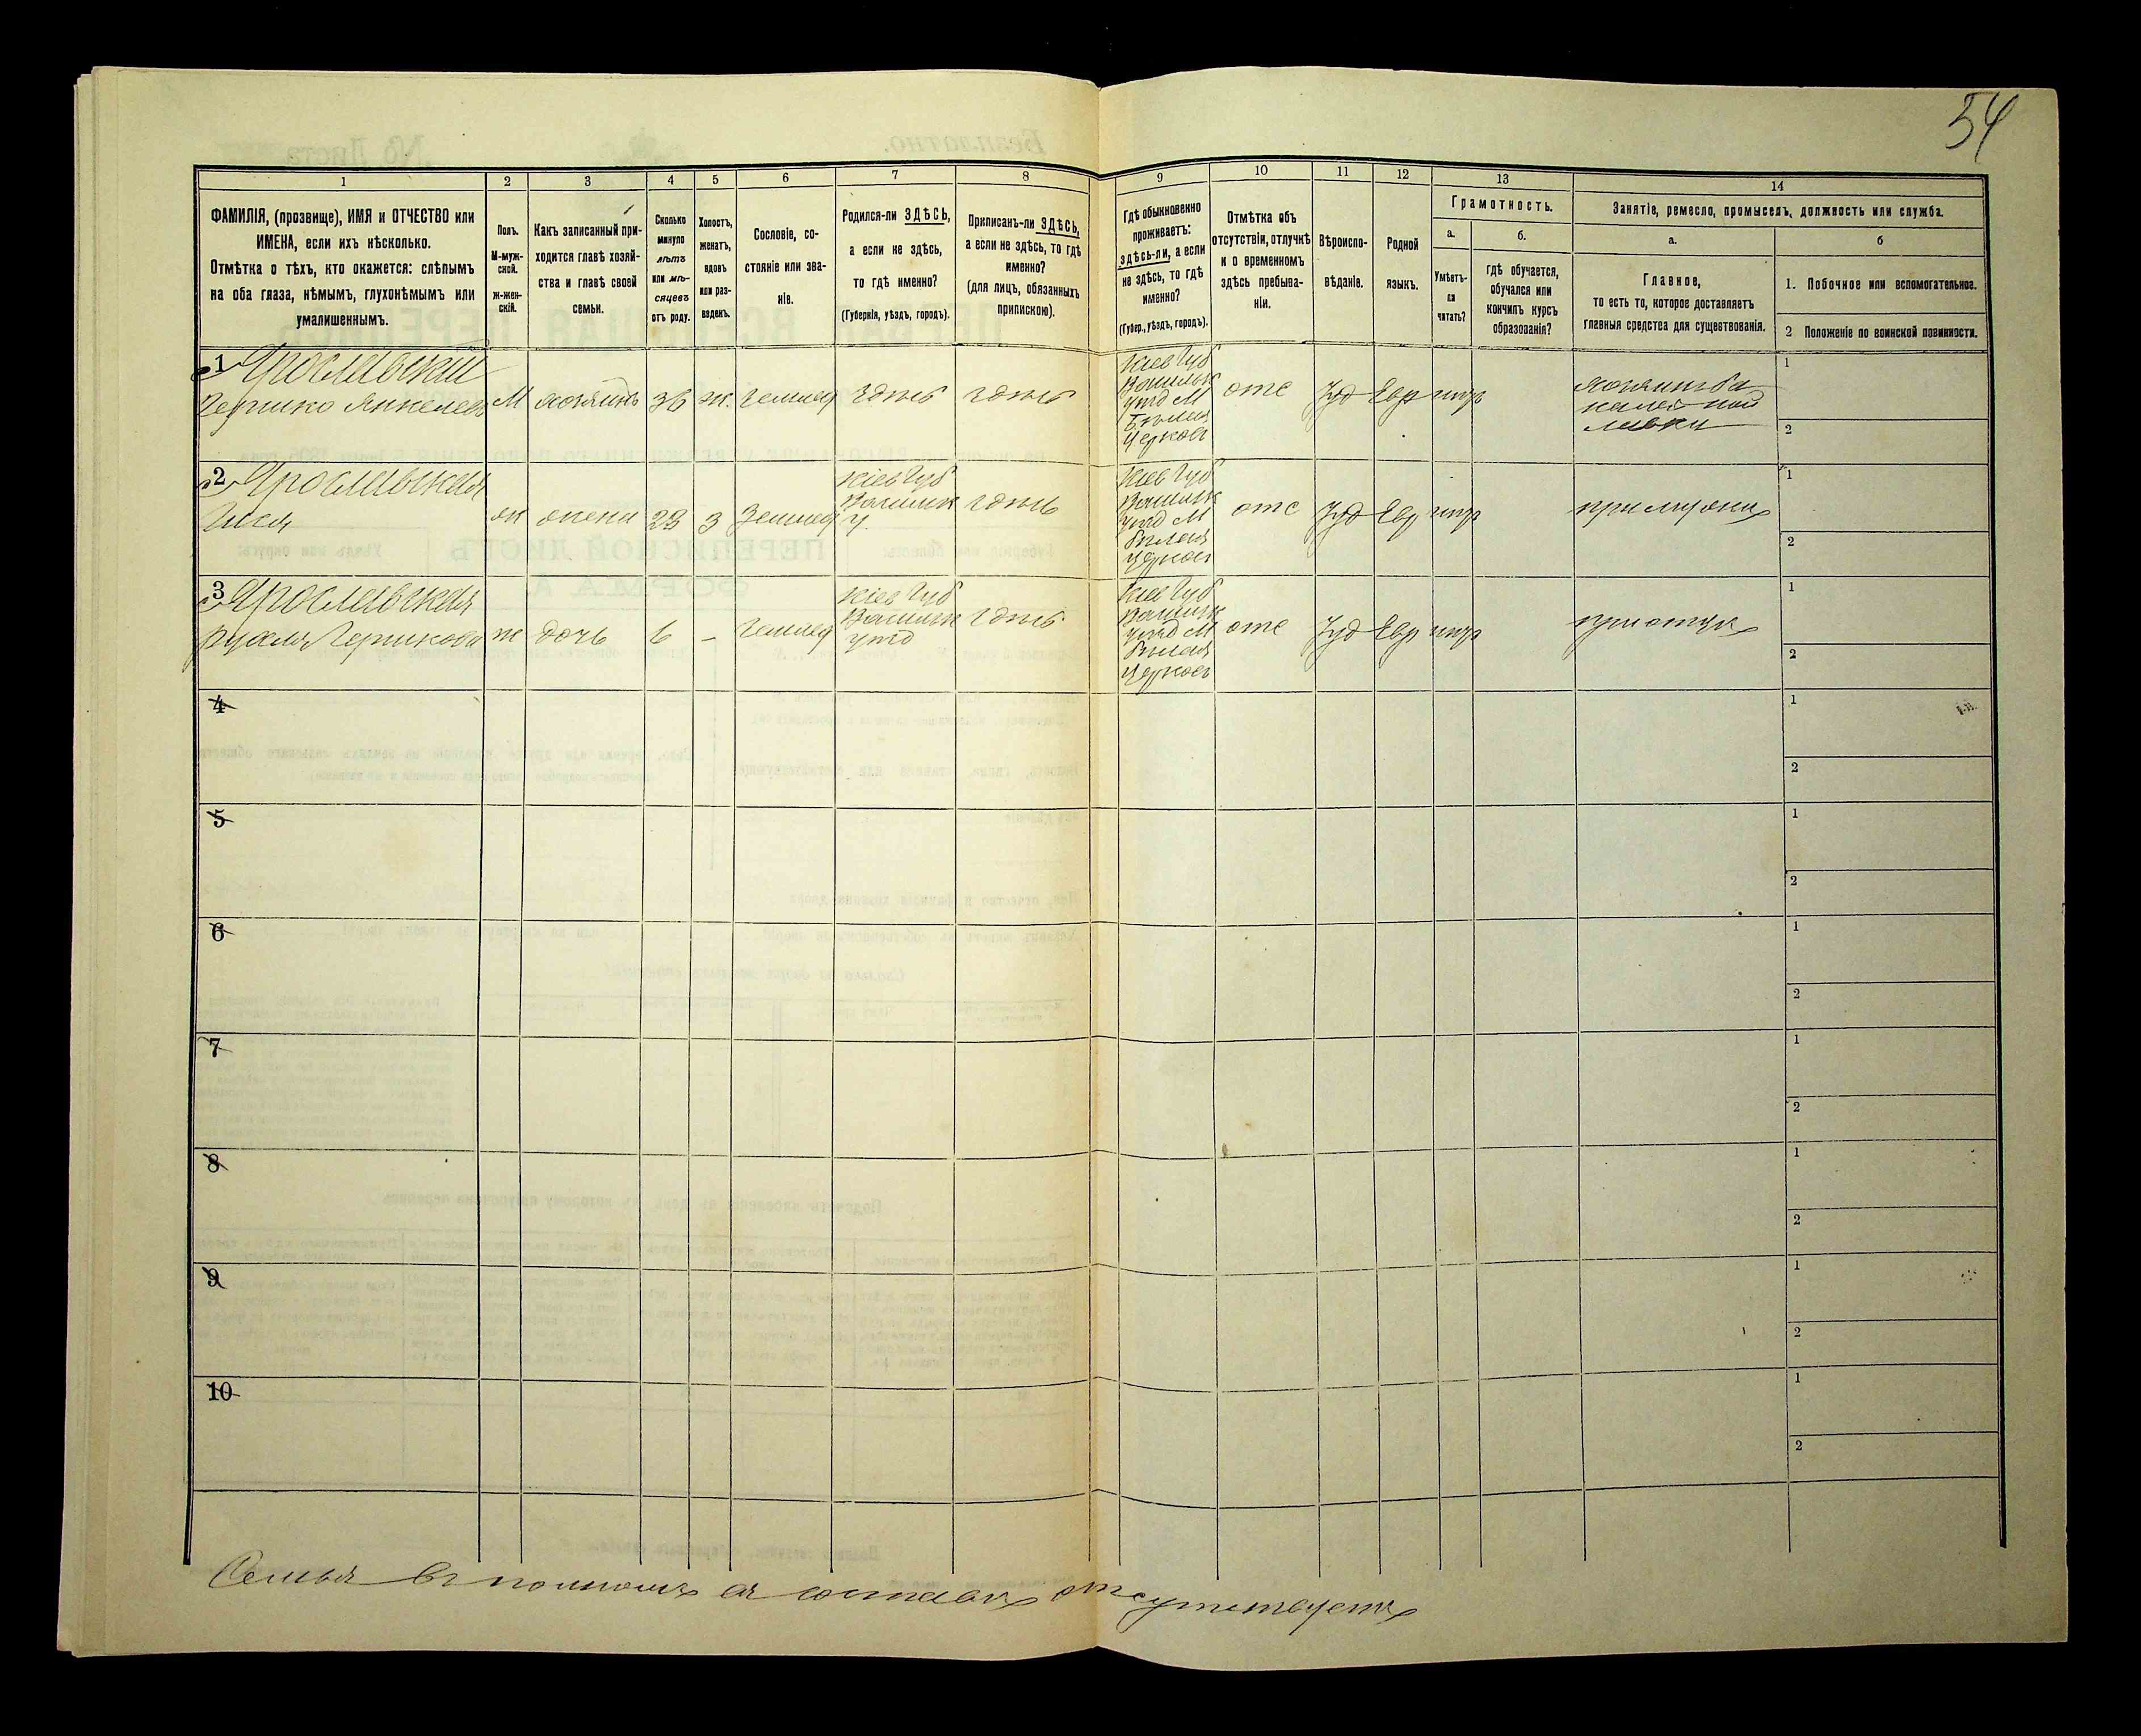 54
1
2
3
4
5
6
7
8
9
10
11
12
13
14
ФАМИЛІЯ, (прозвище), ИМЯ и ОТЧЕСТВО или
ИМЕНА, если ихъ нѣсколько.
Отмѣтка о тѣхъ, кто окажется: слѣпымъ
на оба глаза, нѣмымъ, глухонѣмымъ или
умалишеннымъ.
Полъ.
М-муж-
ской.
ж-жен-
скій.
Какъ записанный при-
ходится главѣ хозяй-
ства и главѣ своей
семьи.
Сколько
минуло
лѣтъ
или мѣ-
сяцевъ
отъ роду.
Холостъ,
женатъ,
вдовъ
или раз-
веденъ.
Сословіе, со-
стояніе или зва-
ніе.
Родился-ли ЗДѢСЬ,
а если не здѣсь,
то гдѣ именно?
(Губернія, уѣздъ, городъ).
Приписанъ-ли ЗДѢСЬ,
а если не здѣсь, то гдѣ
именно?
(для лицъ, обязанныхъ
припискою).
Гдѣ обыкновенно
проживаетъ:
здѣсь-ли, а если
не здѣсь, то гдѣ
именно?
(Губер., уѣздъ, городъ).
Отмѣтка объ
отсутствіи, отлучкѣ
и о временномъ
здѣсь пребыва-
ніи.
Вѣроиспо-
вѣданіе.
Родной
языкъ.
Грамотность.
а.
Умѣетъ-
ли
читать?
б.
гдѣ обучается,
обучался или
кончилъ курсъ
образованія?
Занятіе, ремесло, промыселъ, должность или служба.
а.
Главное,
то есть то, которое доставляетъ
главныя средства для существованія.
б
1. Побочное или вспомогательное.
2 Положеніе по воинской повинности.
1 Ярославскій
Гершко Янкелевъ М хозяинъ 36 ж. землед здѣсь здѣсь
Кіев Губ
Васильк
уѣзд М
Бѣлая
Церковь
отс Іуд Евр
1
2
2 Ярославская
ж жена 23 з землед
Кіев Губ
Васильк
у.
здѣсь
Кіев Губ
Васильк
уѣзд М
Бѣлая
Церковь
отс Іуд Евр
при мужѣ
1
2
3 Ярославская
Рухля Гершкова ж дочь 6 - землед
Кіев Губ
Васильк
уѣзд
здѣсь
Кіев Губ
Васильк
уѣзд М
Бѣлая
Церковь
отс Іуд Евр
при отцѣ
1
2
4
1
2
5
1
2
6
1
2
7
1
2
8
1
2
9
1
2
10
1
2
Семья въ полномъ ея составѣ отсутствуетъ